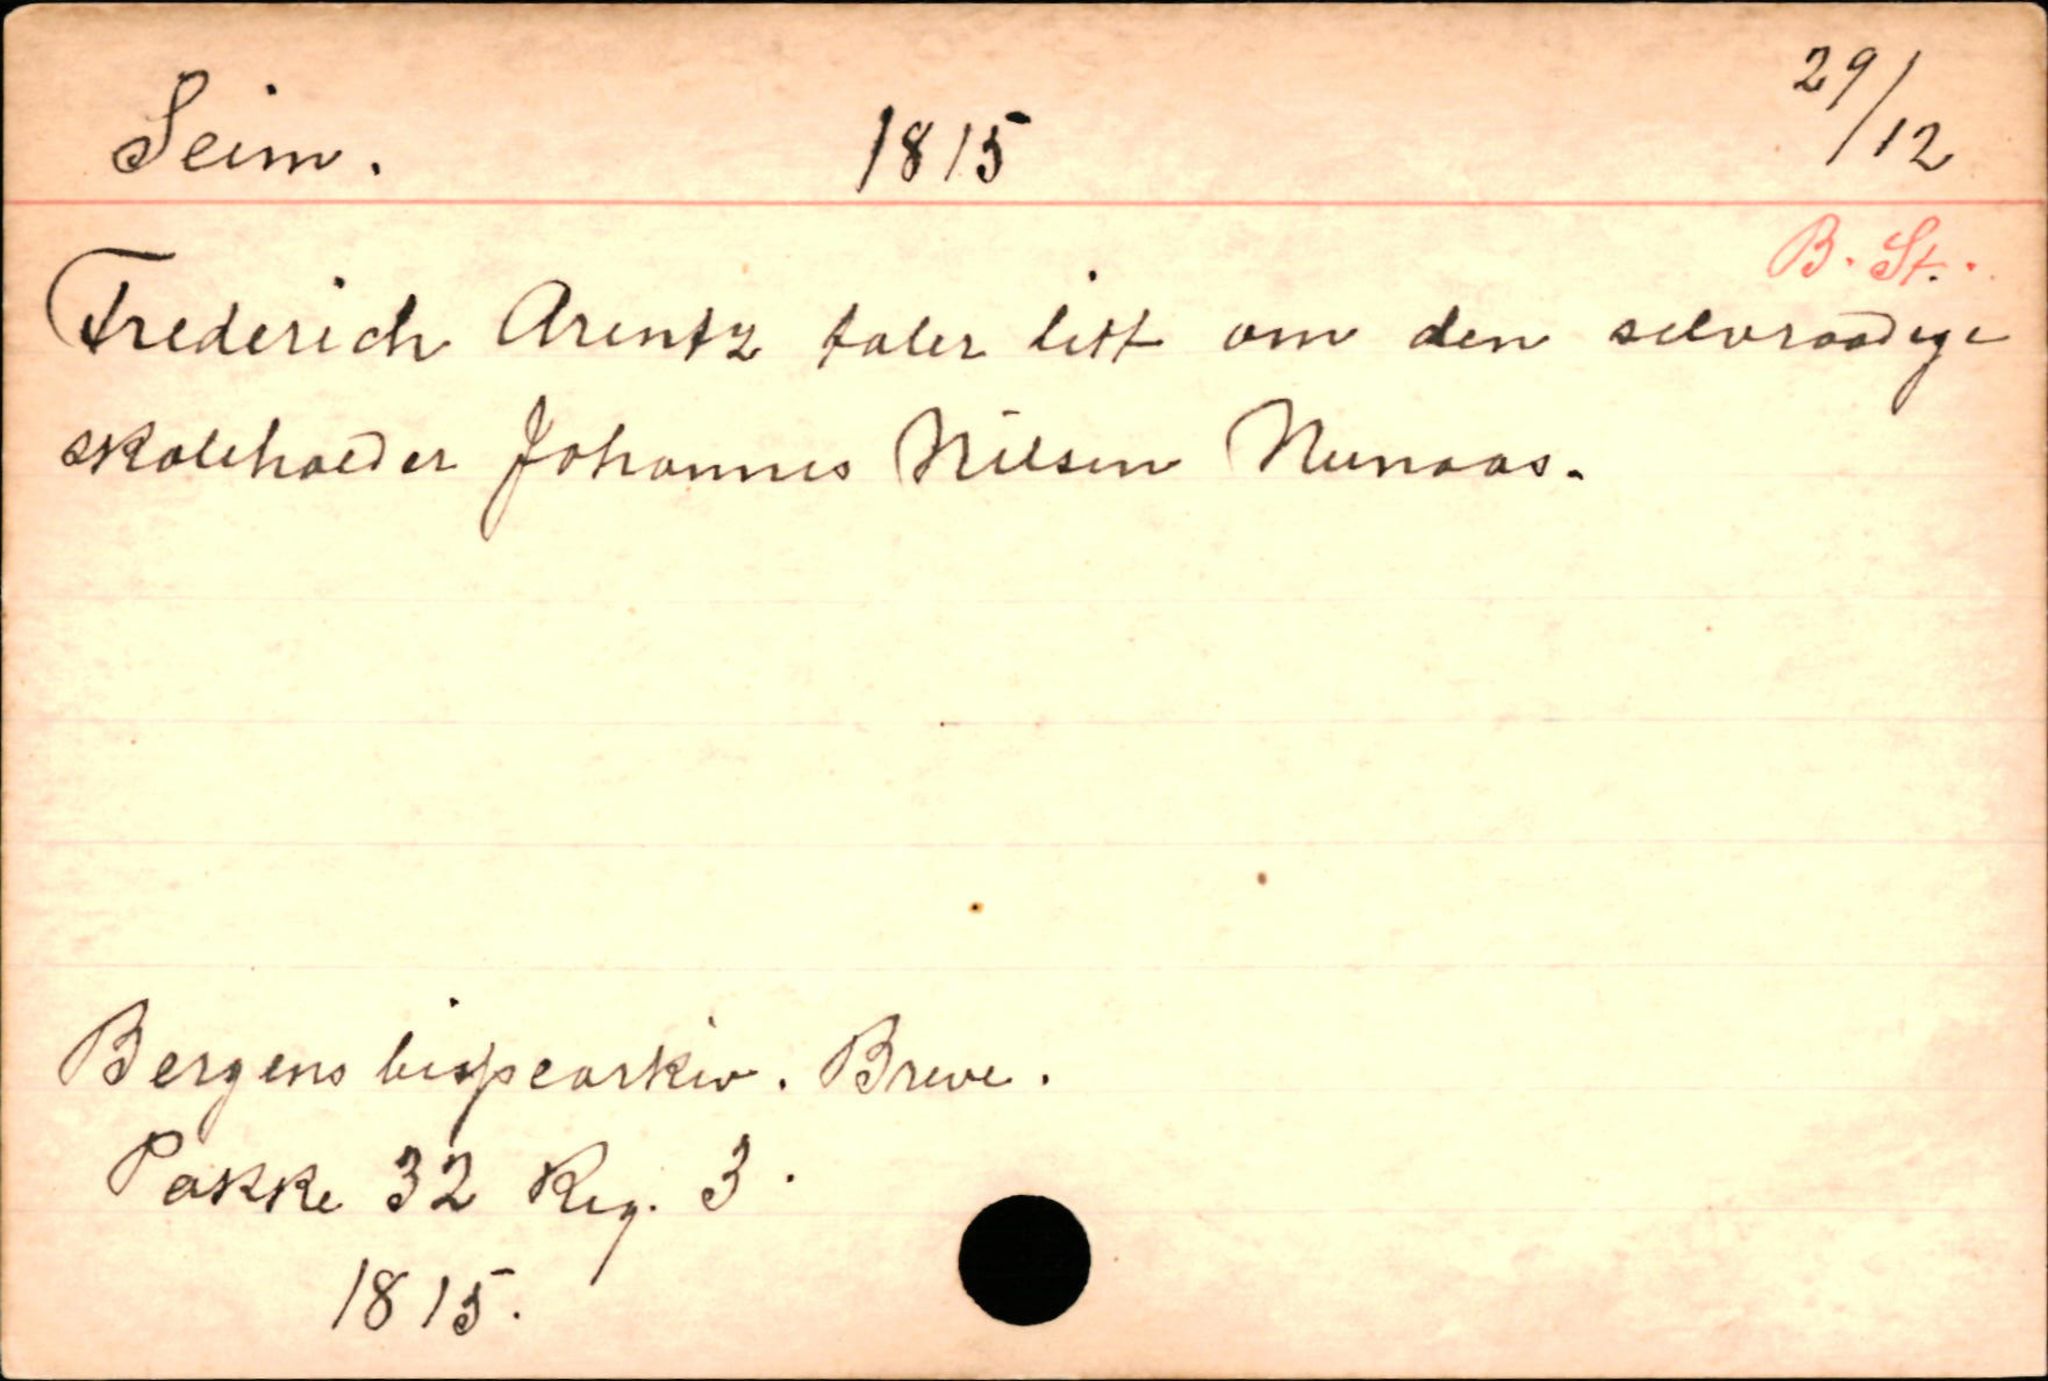 Seim. 1815 29/12
B. St.
Frederich Arentz taler litt om den selvraadige
skoleholder Johannes Nilsen Nunaas.
Bergens bispearkiv. Breve.
Pakke 32 Reg. 3.
1815.